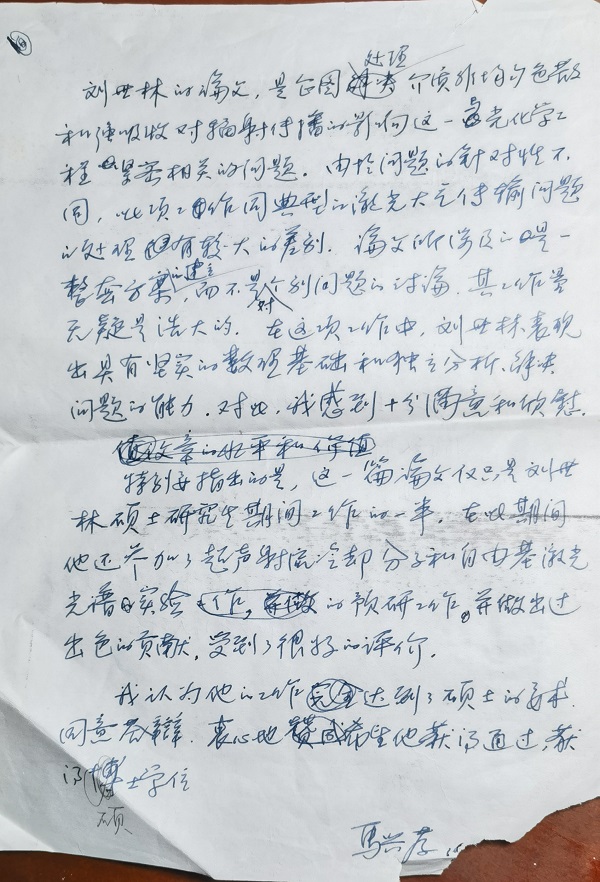 处理
刘世林的论文，是企图 介质非均匀色散
和强吸收对辐射传播的影响这一与光化学工
程 紧密相关的问题。由于问题的针对性不
同，此项工作同典型的激光大气传输问题
的处理 有较大的差别。论文所涉及的是一
整套方案的建立，而不是对个别问题的讨论，其工作量
无疑是浩大的。在这项工作中，刘世林表现
出具有坚实的数理基础和独立分析、解决
问题的能力。对此，我感到十分满意和欣慰。
文章的水平和价值
特别要指出的是，这一篇论文仅只是刘世
林硕士研究生期间工作的一半。在此期间
他还参加了超声射流冷却分子和自由基激光
光谱的实验 工作， 的预研工作。并做出过
出色的贡献，受到了很好的评价。
我认为他的工作完全达到了硕士的要求
同意答辩。衷心地 希望他获得通过，获
得博士学位
硕
马兴孝